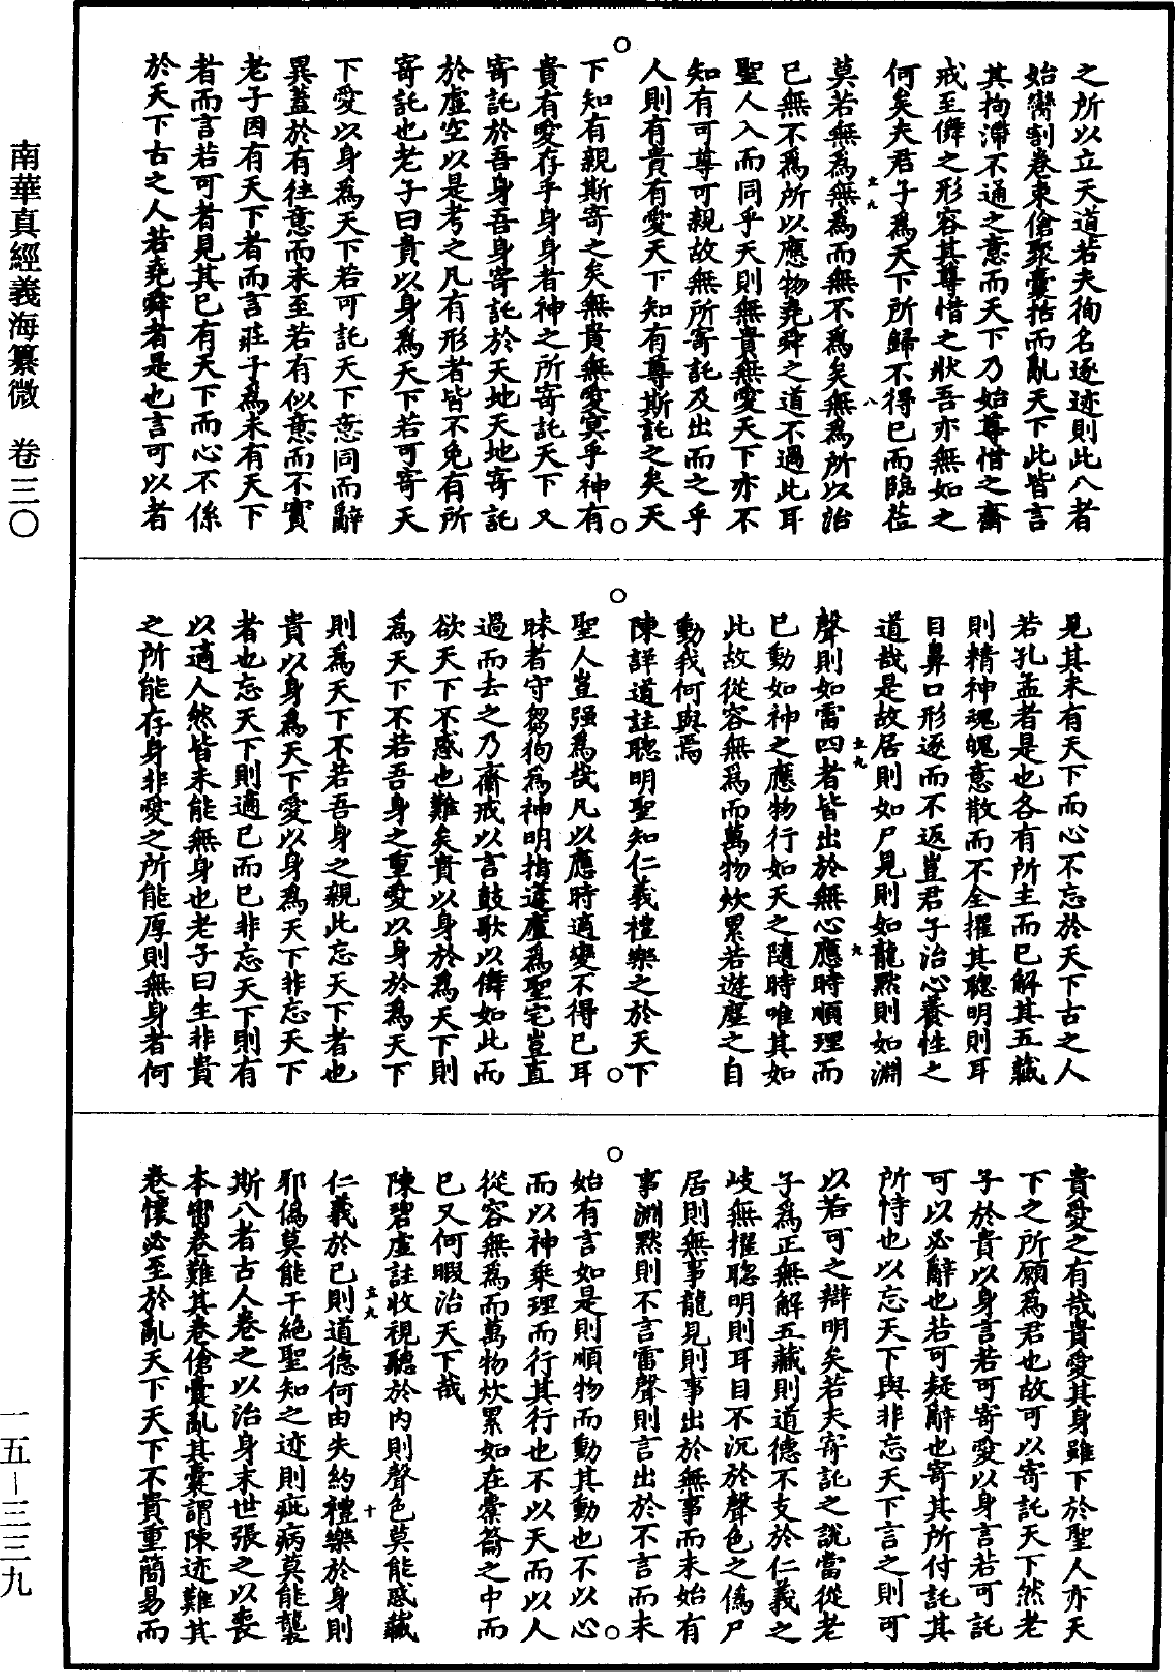 之所以立天道若夫徇名逐迹則此八者
始臠割卷束傖聚囊括而亂天下此皆言
其拘滯不通之意而天下乃始尊惜之齋
戒至儛之形容其尊惜之狀吾亦無如之
何矣夫君子為天下所歸不得已而臨莅
莫若無為無為而無不為矣無為所以治
已無不為所以應物堯舜之道不過此耳
聖人入而同乎天則無貴無愛天下亦不
知有可尊可親故無所寄託及出而之乎
人則有貴有愛天下知有尊斯託之矣天
下知有親斯寄之矣無貴無愛冥乎神有
貴有愛存乎身身者神之所寄託天下又
寄託於吾身吾身寄託於天地天地寄託
於虛空以是考之凡有形者皆不免有所
寄託也老子曰貴以身為天下若可寄天
下愛以身為天下若可託天下意同而辭
異蓋於有往意而未至若有似意而不實
老子因有天下者而言莊子為未有天下
者而言若可者見其已有天下而心不係
於天下古之人若堯舜者是也言可以者
見其未有天下而心不忘於天下古之人
若孔孟者是也各有所主而已解其五藏
則精神魂魄意散而不全擢其聰明則耳
目鼻口形逐而不返豈君子治心養性之
道哉是故居則如尸見則如龍默則如淵
聲則如雷四者皆出於無心應時順理而
已動如神之應物行如天之隨時唯其如
此故從容無為而萬物炊累若遊塵之自
動我何與焉
陳詳道註聰明聖知仁義禮樂之於天下
聖人豈强為哉凡以應時適變不得已耳
昧者守芻狗為神明指蘧廬為聖宅豈直
過而去之乃齋戒以言鼓歌以儛如此而
欲天下不惑也難矣貴以身於為天下則
為天下不若吾身之重愛以身於為天下
則為天下不若吾身之親此忘天下者也
貴以身為天下愛以身為天下非忘天下
者也忘天下則適已而已非忘天下則有
以適人然皆未能無身也老子曰生非貴
之所能存身非愛之所能厚則無身者何
貴愛之有哉貴愛其身雖下於聖人亦天
下之所願為君也故可以寄託天下然老
子於貴以身言若可寄愛以身言若可託
可以必辭也若可疑辭也寄其所付託其
所恃也以忘天下與非忘天下言之則可
以若可之辯明矣若夫寄託之說當從老
子為正無解五藏則道德不支於仁義之
岐無擢聰明則耳目不沉於聲色之偽尸
居則無事龍見則事出於無事而未始有
事淵默則不言雷聲則言出於不言而未
始有言如是則順物而動其動也不以心
而以神乘理而行其行也不以天而以人
從容無為而萬物炊累如在橐籥之中而
已又何暇治天下哉
陳碧虛註收視聽於內則聲色莫能惑藏
仁義於已則道德何由失約禮樂於身則
邪偽莫能干絕聖知之迹則疵病莫能襲
斯八者古人卷之以治身末世張之以喪
本臠卷難其卷傖囊亂其囊謂陳迹難其
卷懷必至於亂天下天下不貴重簡易而
南華真經義海纂微　卷三〇
一五—三三九